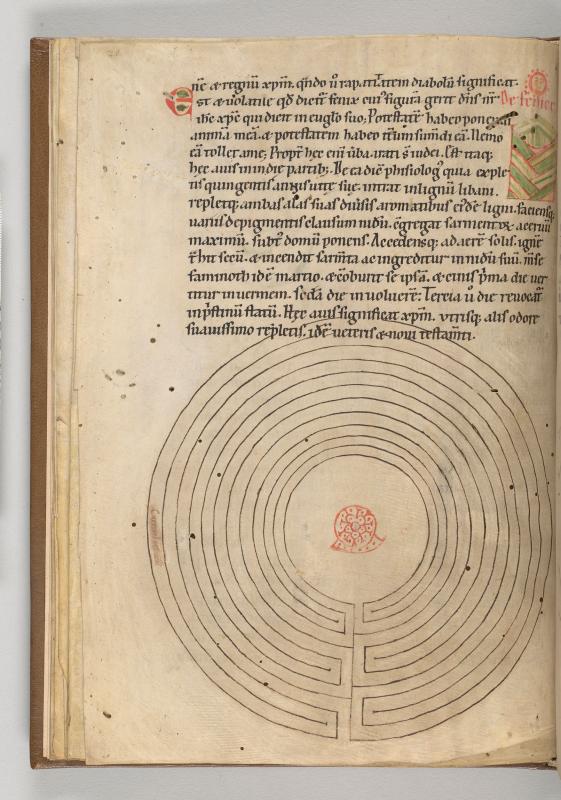 nē & regnū xpm̄. qn̄do ū rapacitatem diabolū significat.
Est & uolatile qd̄ dicit̄ fenix eius figurā gerit dn̄s nr̄ De fenice
ihc xpc̄ qui dicit in euglo suo; Potestatē habeo ponendi
animā meā & potestatem habeo iterum sumendi eā. Nemo
eā tollet a me; Propt̄ hec eni uba irati s̄ iudei. Est itaq;
hec auis in indie partib; De ea dic̄ phisiologˀ quia exple
tis quingentis annis uite sue. intrat in lignū libani.
repletq; ambas alas suas diusis aromatibus eide ligni. faciensq;
uariis de pigmentis clausum nidū. cgregat sarmentor aceruū
maximū. subt̄ domū ponens. Accedensq; ad aerē solis. ignē
secū. & incendit sarm̄ta ac ingreditur in nidū suū. m̄se
faminoth idē martio. & cōburit se ipsā. & cinis p̄ma die uer
titur in uermem. secda die in uoluerē. Tercia ū die reuocat̄
in p̄stinū statū. Hec auis significat xpm̄. utrisq; alis odore
suauissimo repletis. idē ueteris & noui testam̄ti.